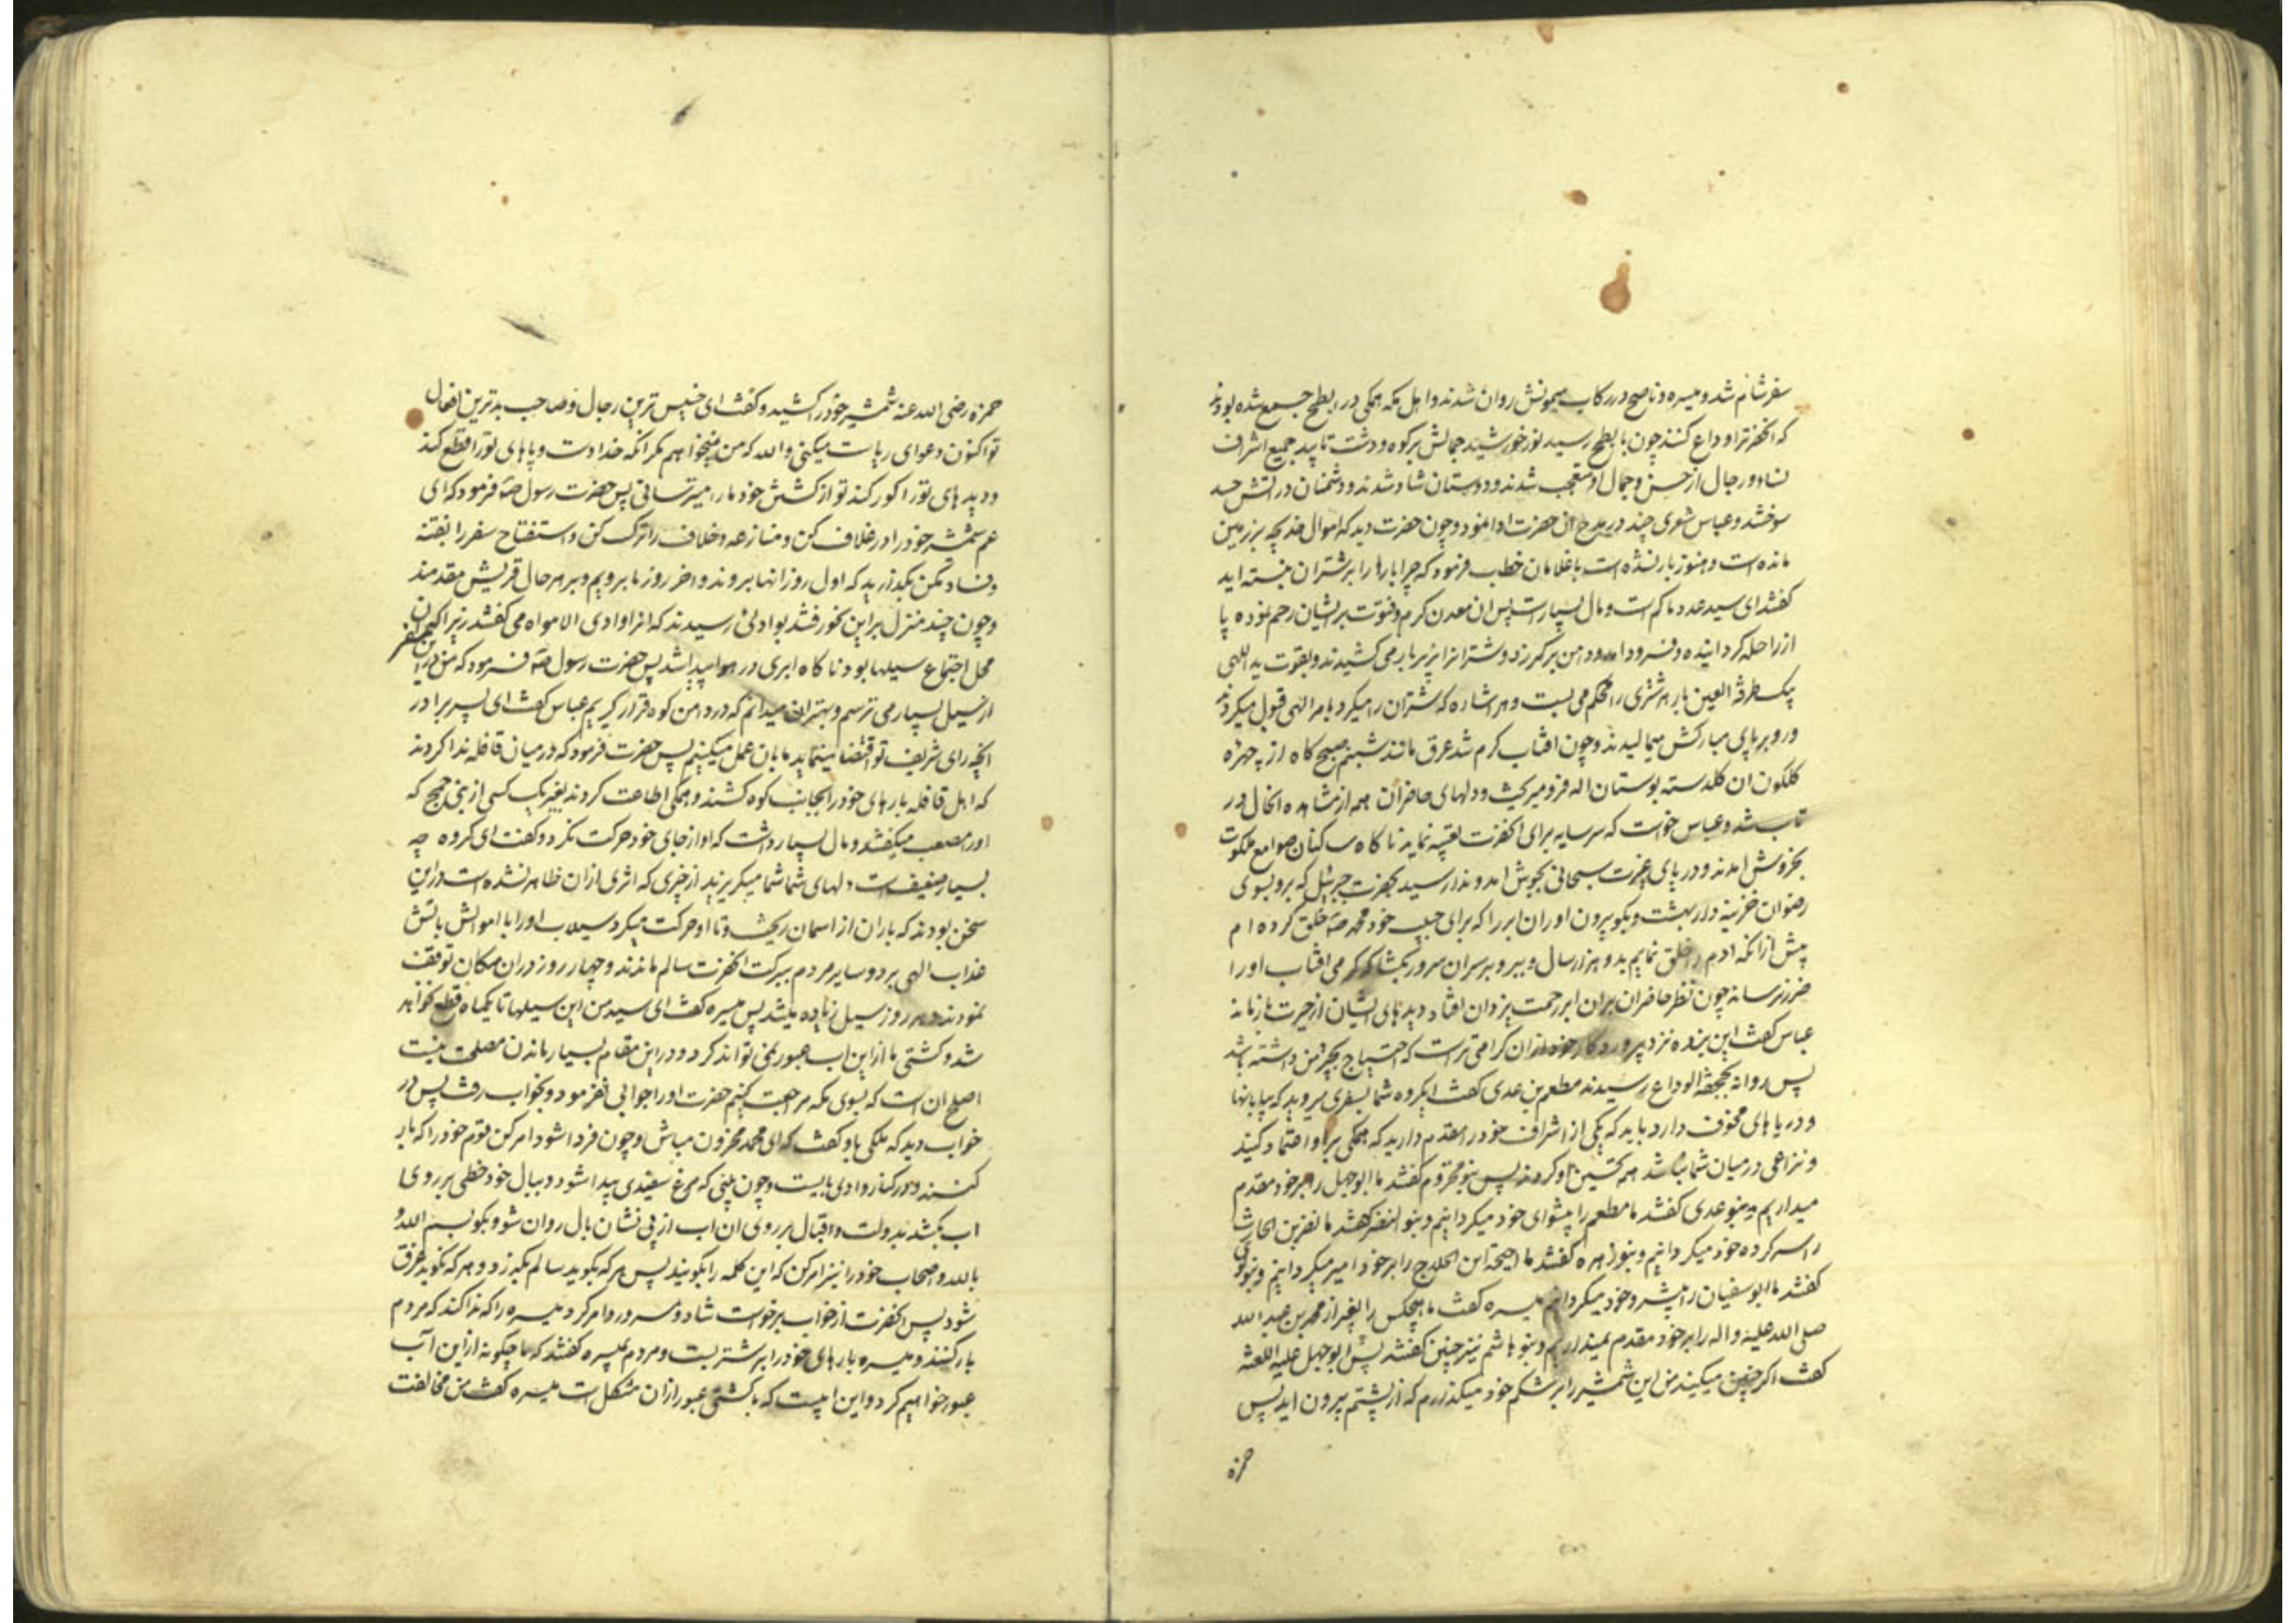 سفر شام شد و میسره و ناصح در رکاب میمونش روان شدند و اهل مکه همگی در ابطح جمع شده بودند
که آنحضرترا وداع کنند چون بابطح رسید نور خورشید جمالش بر کوه و دشت تابید جمیع اشراف
نساء و رجال از حسن و جمال او متعجب شدند و دوستان شاد شدند و دشمنان در آتش حسد
سوختند و عباس شعری چند در مدح آن حضرت ادا نمود و چون حضرت دید که اموال خدیجه بر زمین
مانده است و هنوز بار نشده است با غلامان خطاب فرمود که چرا بارها را بر شتران نبسته اید
گفتند ای سید عدد ما کم است و مال بسیار است پس آن معدن کرم و فتوت بر ایشان رحم نموده پا
از راحله گردانیده و فرود آمد و دامن بر کمر زد و شترانرا بزیر بار می کشیدند و بقوت ید اللهی
بیک طرفة العین بار هر شتری را محکم می بست و هر اشاره که شتران را میکرد بامر الهی قبول میکردند
و رو بر پای مبارکش میمالیدند و چون آفتاب گرم شد عرق مانند شبنم صبح گاه از چهره
گلگون آن گلدسته بوستان اله فرو میریخت و دلهای حاضران همه از مشاهده آنحال در
تاب شد و عباس خواست که سرسایه برای آنحضرت تعبیه نماید ناگاه ساکنان صوامع ملکوت
بخروش آمدند و دریای غیرت سبحانی بجوش آمد و ندا رسید بحضرت جبرئیل که برو بسوی
رضوان خزینه دار بهشت و بگو بیرون آور آن ابر را که برای حبیب خود محمد صه خلق کرده ام
پیش از آنکه آدم را خلق نمایم بدو هزار سال و ببر و بر سر آن سرور بگشا که گرمی آفتاب او را
ضرر نرساند چون نظر حاضران بر آن ابر رحمت یزدان افتاد دیدهای ایشان از حیرت باز ماند
عباس گفت این بنده نزد پروردگار خود از آن گرامی تر است که احتیاج بچتر من داشته باشد
پس روانه بجحفة الوداع رسیدند مطعم بن عدی گفت ای گروه شما بسفری میروید که بیابانها
و دریاهای مخوف دارد باید که یکی از اشراف خود را مقدم دارید که همگی بر او اعتماد کنید
و نزاعی در میان شما نباشد همه تحسین او کردند پس بنو مخزوم گفتند ما ابوجهل را بر خود مقدم
میداریم و بنو عدی گفتند ما مطعم را پیشوای خود میگردانیم و بنو النضر گفتند ما نضر بن الحارث
را سرکرده خود میگردانیم و بنو زهره گفتند ما احیحة ابن الجلاح را بر خود امیر میگردانیم و بنو لوی
گفتند ما ابوسفیان را پیشرو خود میگردانیم میسره گفت ما هیچکس را بغیر از محمد بن عبد الله
صلی الله علیه و اله را بر خود مقدم نمیداریم و بنو هاشم نیز چنین گفتند پس ابوجهل علیه اللعنة
گفت اگر چنین میکنید من این شمشیر را بر شکم خود میگذارم که از پشتم بیرون آید پس
حمزه
حمزه رضی الله عنه شمشیر خود را کشید و گفت ای خسیس ترین رجال و صاحب بدترین افعال
تو اکنون دعوای ریاست میکنی و الله که من نمیخواهم مگر آنکه خدا دست و پاهای تو را قطع کند
و دیدهای تو را کور کند تو از کشتن خود ما را میترسانی پس حضرت رسول صه فرمود که ای
عم شمشیر خود را در غلاف کن و منازعه و خلاف را ترک کن و استفتاح سفر را بفتنه
و فساد مکن بگذارید که اول روز آنها بروند و آخر روز ما برویم و بر هر حال قریش مقدمند
و چون چند منزل بر این نحو رفتند بوادئی رسیدند که آنرا وادی الامواه می گفتند زیرا که آن
محل اجتماع سیلها بود ناگاه ابری در هوا پیدا شد پس حضرت رسول صه فرمود که من در این سفر
از سیل بسیار می ترسم و بهتر آن میدانم که در دامن کوه قرار گیریم عباس گفت ای پسر برادر
آنچه رای شریف تو اقتضا مینماید ما بآن عمل میکنیم پس حضرت فرمود که در میان قافله ندا کردند
که اهل قافله بارهای خود را بجانب کوه کشند و همگی اطاعت کردند بغیر یک کس از بنی جمح که
او را مصعب میگفتند و مال بسیار داشت که او از جای خود حرکت نکرد و گفت ای گروه چه
بسیار ضعیف است دلهای شما شما میگریزید از چیزی که اثری از آن ظاهر نشده است در این
سخن بودند که باران از آسمان ریخت و تا او حرکت میکرد سیلاب او را با اموالش بآتش
عذاب الهی برد و سایر مردم ببرکت آنحضرت سالم ماندند و چهار روز در آن مکان توقف
نمودند و هر روز سیل زیاده میشد پس میسره گفت ای سید من این سیلها تا یکماه قطع نخواهد
شد و کشتی ما از این آب عبور نمی تواند کرد و در این مقام بسیار ماندن مصلحت نیست
اصلح آن است که بسوی مکه مراجعت کنیم حضرت او را جوابی نفرمود و بخواب رفت پس در
خواب دید که ملکی باو گفت که ای محمد محزون مباش و چون فردا شود امر کن قوم خود را که بار
کنند و در کنار وادی بایست و چون بینی که مرغ سفیدی پیدا شود و ببال خود خطی بر روی
آب بکشد بدولت و اقبال بر روی آن آب از پی نشان بال روان شو و بگو بسم الله و
بالله و اصحاب خود را نیز امر کن که این کلمه را بگویند پس هر که بگوید سالم بگذرد و هر که نگوید غرق
شود پس آنحضرت از خواب برخواست شاد و مسرور و امر کرد میسره را که ندا کند که مردم
بار کنند و میسره بارهای خود را بر شتر بست و مردم بمیسره گفتند که ما چگونه از این آب
عبور خواهیم کرد و این آبیست که با کشتی عبور از آن مشکل است میسره گفت من مخالفت